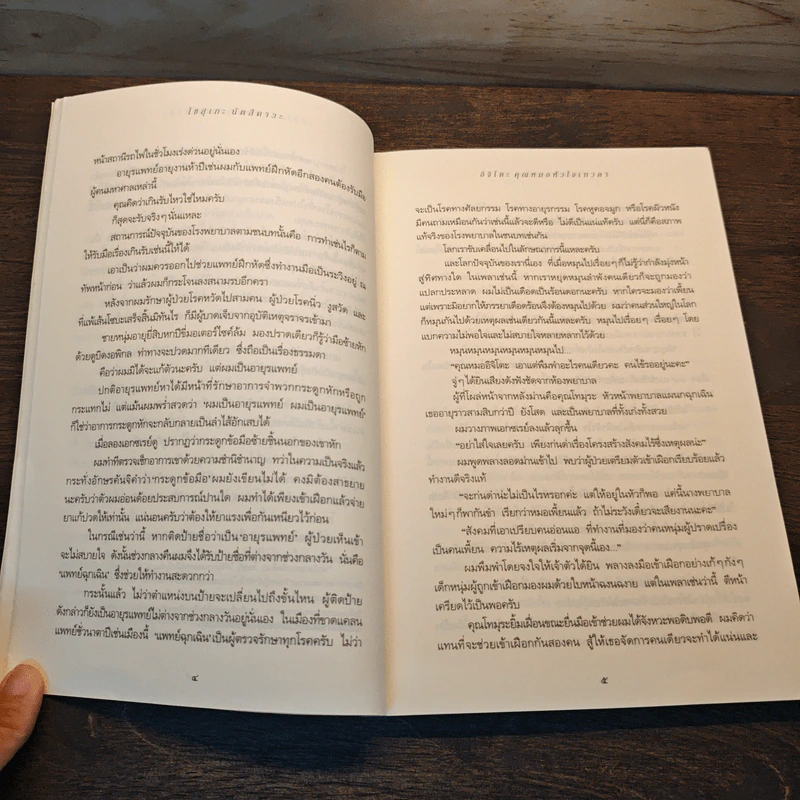 โซสุเกะ นัตสึคาวะ
หน้าสถานีรถไฟในชั่วโมงเร่งด่วนอยู่นั่นเอง
อายุรแพทย์อายุงานห้าปีเช่นผมกับแพทย์ฝึกหัดอีกสองคนต้องรับมือ
ผู้คนมหาศาลเหล่านี้
คุณคิดว่าเกินรับไหวใช่ไหมครับ
ก็สุดจะรับจริงๆ นั่นแหละ
สถานการณ์ปัจจุบันของโรงพยาบาลตามชนบทนั้นคือ การทำเช่นไรก็ตาม
ให้รับมือเรื่องเกินรับเช่นนี้ให้ได้
เอาเป็นว่าผมควรออกไปช่วยแพทย์ฝึกหัดซึ่งทำงานมือเป็นระวิงอยู่ ณ
ทัพหน้าก่อน ว่าแล้วผมก็กระโจนลงสนามรบอีกครา
หลังจากผมรักษาผู้ป่วยโรคหวัดไปสามคน ผู้ป่วยโรคนิ่ว งูสวัด และ
ที่แพ้เส้นโซบะเสร็จสิ้นมิทันไร ก็มีผู้บาดเจ็บจากอุบัติเหตุจราจรเข้ามา
ชายหนุ่มอายุยี่สิบหกปีขี่มอเตอร์ไซค์ล้ม มองปราดเดียวก็รู้ว่ามือซ้ายหัก
ด้วยดูบิดงอพิกล ท่าทางจะปวดมากทีเดียว ซึ่งถือเป็นเรื่องธรรมดา
คือว่าผมมิได้จะแก้ตัวนะครับ แต่ผมเป็นอายุรแพทย์
ปกติอายุรแพทย์หาได้มีหน้าที่รักษาอาการจำพวกกระดูกหักหรือถูก
กระแทกไม่ แต่แม้นผมพร่ำสวดว่า 'ผมเป็นอายุรแพทย์ ผมเป็นอายุรแพทย์'
ก็ใช่ว่าอาการกระดูกหักจะกลับกลายเป็นลำไส้อักเสบได้
เมื่อลองเอกซเรย์ดู ปรากฏว่ากระดูกข้อมือซ้ายชิ้นนอกของเขาหัก
ผมทำทีตรวจเช็กอาการเขาด้วยความชำนิชำนาญ ทว่าในความเป็นจริงแล้ว
กระทั่งอักษรคันจิคำว่า 'กระดูกข้อมือ' ผมยังเขียนไม่ได้ คงมิต้องสาธยาย
นะครับว่าตัวผมอ่อนด้อยประสบการณ์ปานใด ผมทำได้เพียงเข้าเฝือกแล้วจ่าย
ยาแก้ปวดให้เท่านั้น แน่นอนครับว่าต้องให้ยาแรงเพื่อกันเหนียวไว้ก่อน
ในกรณีเช่นว่านี้ หากติดป้ายชื่อว่าเป็น 'อายุรแพทย์' ผู้ป่วยเห็นเข้า
จะไม่สบายใจ ดังนั้นช่วงกลางคืนผมจึงได้รับป้ายชื่อที่ต่างจากช่วงกลางวัน นั่นคือ
'แพทย์ฉุกเฉิน' ซึ่งช่วยให้ทำงานสะดวกกว่า
กระนั้นแล้ว ไม่ว่าตำแหน่งบนป้ายจะเปลี่ยนไปถึงขั้นไหน ผู้ติดป้าย
ดังกล่าวก็ยังเป็นอายุรแพทย์ไม่ต่างจากช่วงกลางวันอยู่นั่นเอง ในเมืองที่ขาดแคลน
แพทย์ชั่วนาตาปีเช่นเมืองนี้ 'แพทย์ฉุกเฉิน' เป็นผู้ตรวจรักษาทุกโรคครับ ไม่ว่า
๔
อิจิโตะ คุณหมอหัวใจเทวดา
จะเป็นโรคทางศัลยกรรม โรคทางอายุรกรรม โรคหูคอจมูก หรือโรคผิวหนัง
มีคนถามเหมือนกันว่าเช่นนี้แล้วจะดีหรือ ไม่ดีเป็นแน่แท้ครับ แต่นี่ก็คือสภาพ
แท้จริงของโรงพยาบาลในชนบทเช่นกัน
โลกเราขับเคลื่อนไปในลักษณาการนี้แหละครับ
และโลกปัจจุบันของเรานี่เอง ที่เมื่อหมุนไปเรื่อยๆ ก็ไม่รู้ว่ากำลังมุ่งหน้า
สู่ทิศทางใด ในเพลาเช่นนี้ หากเราหยุดหมุนลำพังคนเดียวก็จะถูกมองว่า
แปลกประหลาด ผมไม่เป็นเดือดเป็นร้อนดอกนะครับ หากใครจะมองว่าเพี้ยน
แต่เพราะมิอยากให้ภรรยาเดือดร้อนจึงต้องหมุนไปด้วย ผมว่าคนส่วนใหญ่ในโลก
ก็หมุนกันไปด้วยเหตุผลเช่นเดียวกันนี้แหละครับ หมุนไปเรื่อยๆ เรื่อยๆ โดย
แบกความไม่พอใจและไม่สบายใจหลายหลากไว้ด้วย
หมุนหมุนหมุนหมุนหมุนหมุนไป...
"คุณหมออิจิโตะ เอาแต่พึมพำอะไรคนเดียวคะ คนไข้รออยู่นะคะ"
จู่ๆ ได้ยินเสียงดังฟังชัดจากห้องพยาบาล
ผู้ที่โผล่หน้าจากหลังม่านคือคุณโทมุระ หัวหน้าพยาบาลแผนกฉุกเฉิน
เธออายุราวสามสิบกว่าปี ยังโสด และเป็นพยาบาลที่ทั้งเก่งทั้งสวย
ผมวางภาพเอกซเรย์ลงแล้วลุกขึ้น
"อย่าใส่ใจเลยครับ เพียงก่นด่าเรื่องโครงสร้างสังคมไร้ซึ่งเหตุผลน่ะ"
ผมพูดพลางลอดม่านเข้าไป พบว่าผู้ป่วยเตรียมตัวเข้าเฝือกเรียบร้อยแล้ว
ทำงานดีจริงแท้
"จะก่นด่าน่ะไม่เป็นไรหรอกค่ะ แต่ให้อยู่ในหัวก็พอ แค่นี้นางพยาบาล
ใหม่ๆ ก็พากันขำ เรียกว่าหมอเพี้ยนแล้ว ถ้าไม่ระวังเดี๋ยวจะเสียงานนะคะ"
"สังคมที่เอาเปรียบคนอ่อนแอ ที่ทำงานที่มองว่าคนหนุ่มผู้ปราดเปรื่อง
เป็นคนเพี้ยน ความไร้เหตุผลเริ่มจากจุดนี้เอง..."
ผมพึมพำโดยจงใจให้เจ้าตัวได้ยิน พลางลงมือเข้าเฝือกอย่างเก้ๆ กังๆ
เด็กหนุ่มผู้ถูกเข้าเฝือกมองผมด้วยใบหน้าฉงนฉงาย แต่ในเพลาเช่นว่านี้ ตีหน้า
เครียดไว้เป็นพอครับ
คุณโทมุระยิ้มเฝื่อนขณะยื่นมือเข้าช่วยผมได้จังหวะพอดิบพอดี ผมคิดว่า
แทนที่จะช่วยเข้าเฝือกกันสองคน สู้ให้เธอจัดการคนเดียวจะทำได้แน่นและ
๕